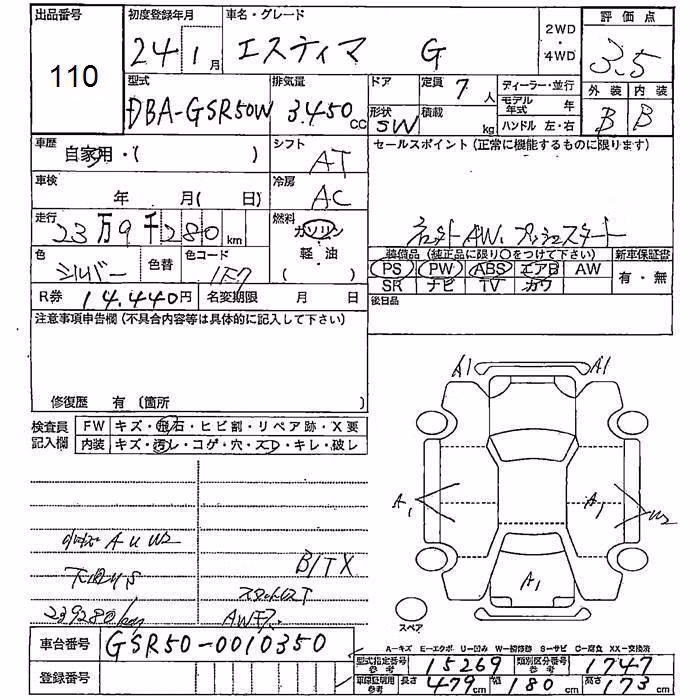 出品番号 初度登録年月 車名・グレード 2WD・4WD 評価点
110 24 1月 エスティマ G 3.5
型式 排気量 ドア 定員 7人 ディーラー・並行 外装 内装
DBA-GSR50W 3.450cc 形状 SW 積載 kg モデル年式 年 B B
ハンドル 左・右
車歴 自家用・( ) シフト AT セールスポイント(正常に機能するものに限ります)
車検 年 月( 日) 冷房 AC
走行 23万9千280km 燃料 ガソリン 軽・油 ( )
AW、プッシュスタート
色 シルバー 色替 色コード 1F7
装備品(純正品に限り○をつけて下さい) 新車保証書
PS PW ABS エアB AW 有・無
SR ナビ TV カワ
R券 14.440円 名変期限 月 日 後日品
注意事項申告欄(不具合内容等は具体的に記入して下さい)
修復歴 有 (箇所 )
検査員記入欄 FW キズ・飛石・ヒビ割・リペア跡・X要
内装 キズ・汚レ・コゲ・穴・スレ・キレ・破レ
A1 A1
A1 A1 W2
A1
スペア
A U W2
B/TX
スタットレスT
239280km
車台番号 GSR50-0010350
登録番号
A-キズ E-エクボ U-凹み W-補修跡 S-サビ C-腐食 XX-交換済
型式指定番号 参考 15269 類別区分番号 参考 1747
車庫証明用 参考 長さ 479cm 幅 180cm 高さ 173cm